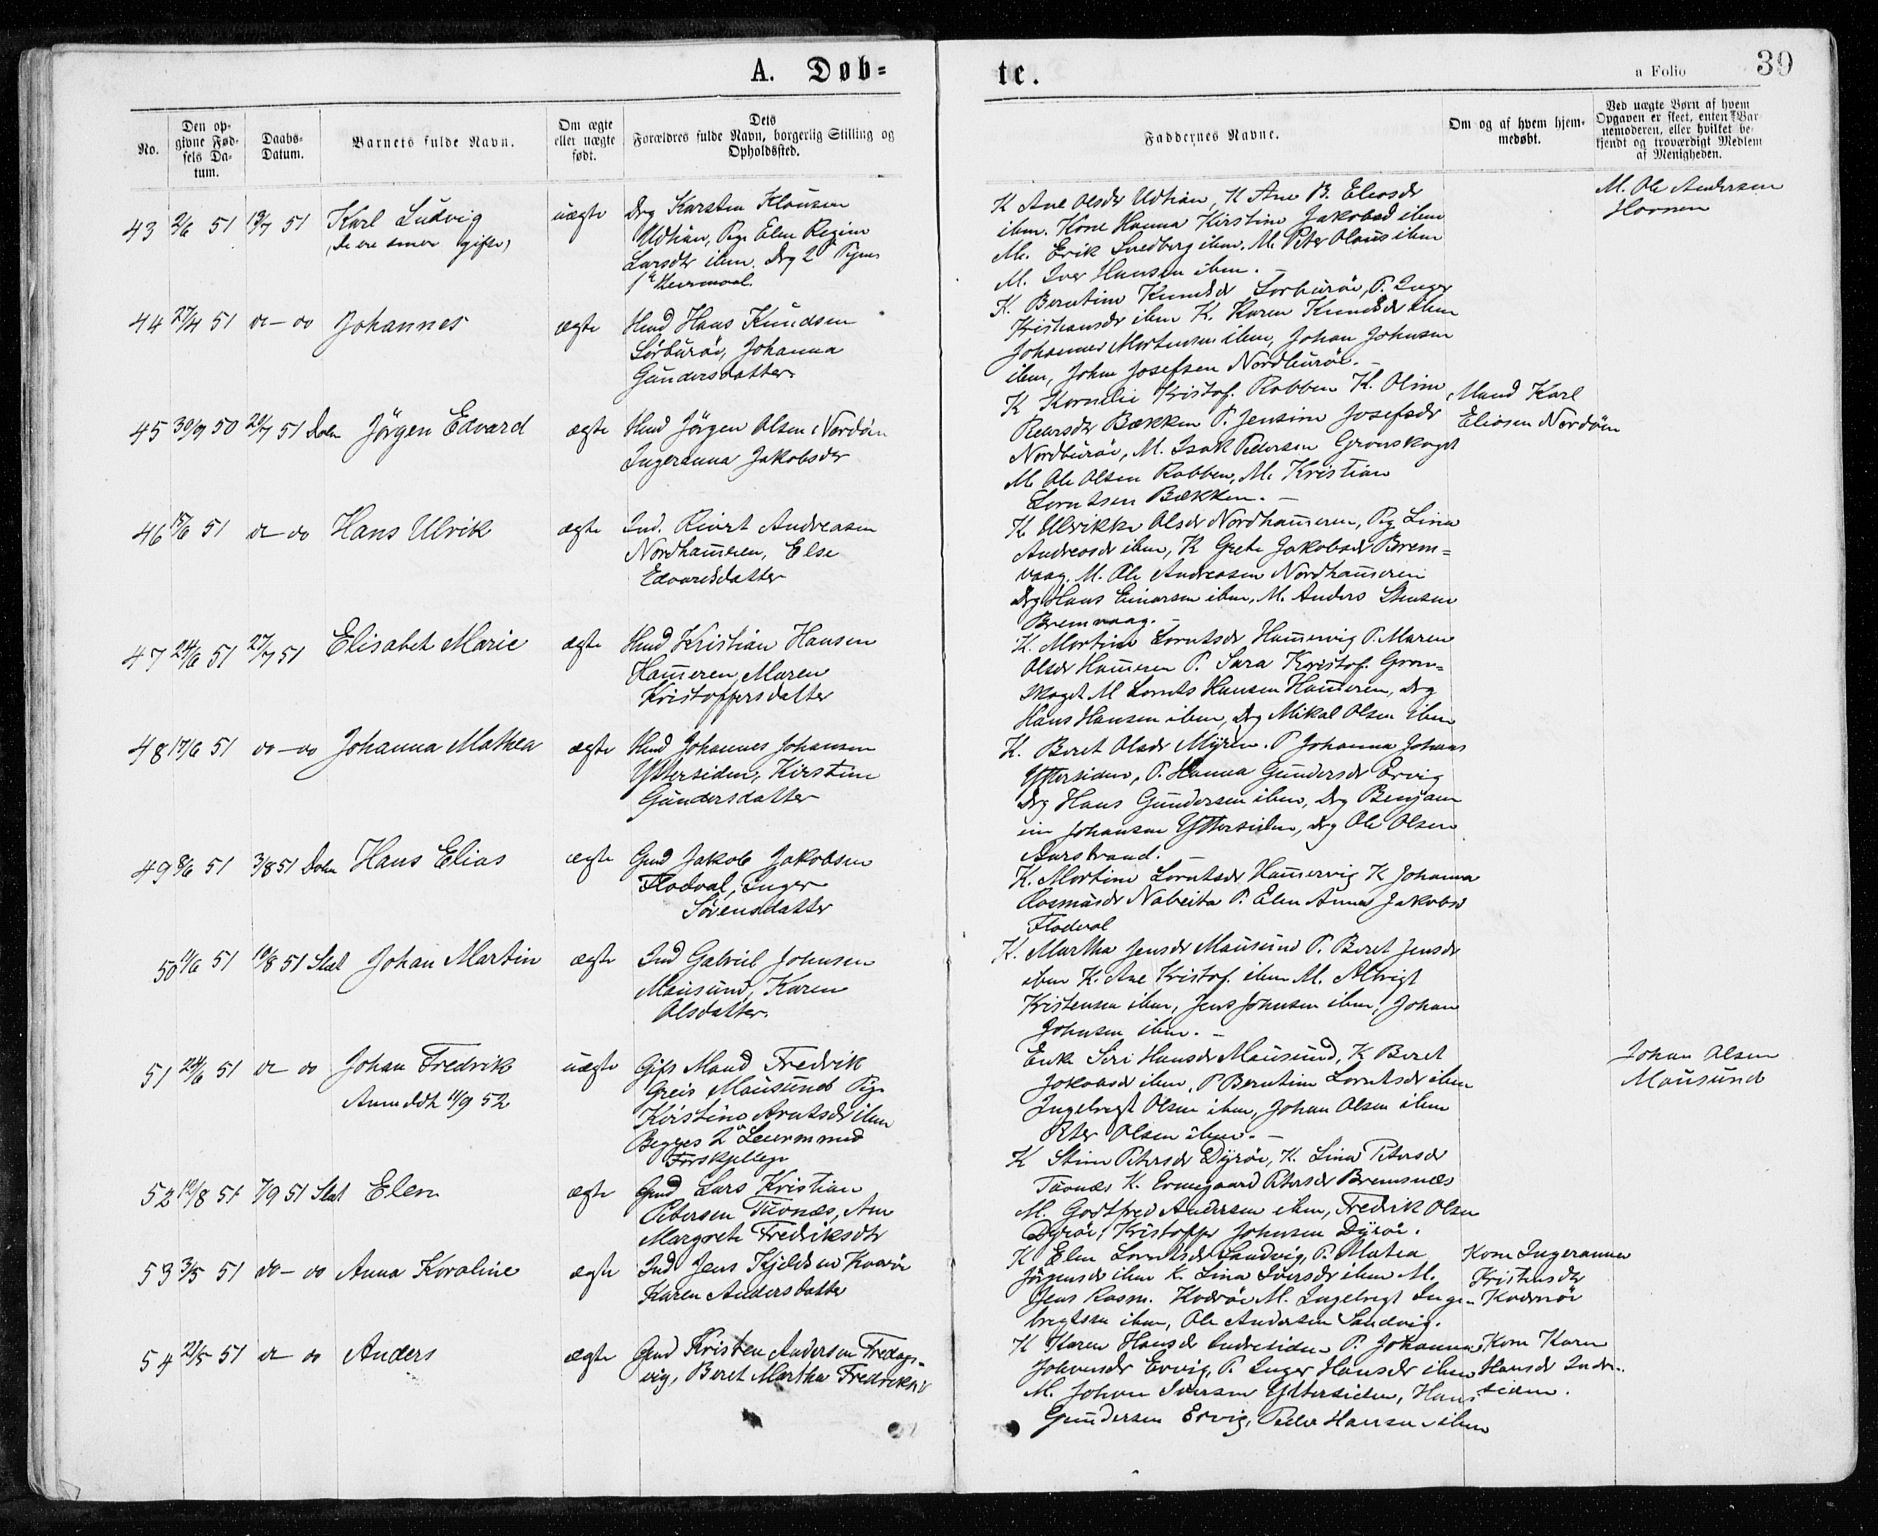 A. Døb=
te.
a Folio 39
No.
Den op-
givne Fød-
sels Da-
tum.
Daabs-
Datum.
Barnets fulde Navn.
Om ægte
eller uægte
født.
Dets
Forældres fulde Navn, borgerlig Stilling og
Opholdssted.
Faddernes Navne.
Om og af hvem hjem-
medøbt.
Ved uægte Børn af hvem
Opgaven er skeet, enten Bar-
nemoderen, eller hvilket be-
kjendt og troværdigt Medlem
af Menigheden.
43 2/6 51 13/7 51 Karl Ludvig
(de ere senere gifte)
uægte
Drg Karsten Klausen
Udtian, Pige Elen Regine
Larsdtr ibm. Drg 2 Pigens
1ste Leiermaal.
K Ane Olsdr Udtian, K Ane B. Eliasdr
ibm. Kone Hanna Kirstine Jakobsd ibm
M. Erik Svedberg ibm. M. Peter Olaus ibm
M. Iver Hansen ibm. -
M. Ole Andersen
44 27/4 51 do - do Johannes
ægte
Hmd Hans Knudsen
Sørburøi, Johanna
Gundersdatter.
K. Berntine Knudsdr Sørburøi, P. Inger
Kristiansdr ibm K. Karen Knudsdr ibm
Johannes Mortensen ibm, Johan Johnsen
ibm, Johan Josefsen Nordburøi. -
45 30/9 50 20/7 51 Dolm Jørgen Edvard
ægte
Hmd Jørgen Olsen Nordøen
Ingeranna Jakobsdr
K Kornelie Kristof. Rabben K. Oline
Bækken P. Jensine Josefsdr
Nordburøi, M. Isak Pedersen Grønskaget
M. Ole Olsen Rabben, M. Kristian
Lorntsen Bækken. -
Mand Karl
Eliasen Nordøen
46 15/6 51 do - do Hans Ulrik
ægte
Ind. Andreasen
Nordhammeren, Else
Edvardsdatter
K. Ulrikke Olsdr Nordhammeren, Pig Lina
Andreasdr ibm, K Grete Jakobsdr Brem=
vaag, M. Ole Andreasen Nordhammeren
Drg Hans Einarsen ibm, M. Anders
Bremvaag. -
47 24/6 51 27/7 51 Elisabet Marie
ægte
Hmd Kristian Hansen
Hammeren, Maren
Kristoffersdatter
K. Mortine Lorntsdr Hammervig P. Maren
Olsdr Hammeren P. Sara Kristof. Grøn=
skaget M Lornts Hansen Hammeren, Drg
Hans Hansen ibm, Drg Mikal Olsen ibm
48 17/6 51 do - do Johanna Mathea
ægte
Hmd Johannes Johansen
Yttersiden, Kirstine
Gundersdatter
K. Beret Olsdr Myren. P Johanna Johans
Yttersiden, P. Hanna Gundersdr Ervig
Drg Hans Gundersen ibm, Drg Benjam
in Johansen Yttersiden, Drg Ole Olsen
Aurstrand. -
49 8/6 51 3/8 51 Dolm Hans Elias
ægte
Gmd Jakob Jakobsen
Flodval, Inger
Sørensdatter
K. Mortine Lorntsdr Hammervig K Johanna
Rasmusdr Nabeita P. Elen Anna Jakobsd
Flodval
50 11/6 51 10/8 51 Slet Johan Martin
ægte
Ind Gabriel Johnsen
Mausund, Karen
Olsdatter.
K. Martha Jensdr Mausund P. Beret Jensdr
ibm K. Ane Kristof. ibm M. Albrigt
Kristensen ibm, Jens Johnsen ibm, Johan
Johnsen ibm. -
51 24/6 51 do do Johan Fredrik
Anmeldt 11/9 52
uægte
Gift Mand Fredrik
Greis Mausund Pige
Kirstine Arntsdr ibm
Begges 2 Leierm. med
Forskjellige
Enke Siri Hansdr Mausund, K Beret
Jakobsdr ibm, P Berntine Lorntsdr ibm
Ingebrigt Olsen ibm, Johan Olsen ibm
Peter Olsen ibm. -
Johan Olsen
Mausund
52 12/8 51 7/9 51 Slet Elen
ægte
Gmd Lars Kristian
Petersen Tuvnæs, Ane
Margrete Fredriksdtr
K Stine Petersdr Dyrøi, K. Lina Petersdr
Tuvnæs K. Ermegaard Petersdr Bremsnæs
M. Godtfred Andersen ibm, Fredrik Olsen
Dyrøi, Kristoffer Johnsen Dyrøi.
53 3/5 51 do - do Anna Karoline
ægte
Ind Jens Kjeldsen
Karen Andersdatter
K. Elen Lorntsdr Sandvig, P. Matea
Jørgensdr ibm K. Lina Iversdr ibm M.
Jens Rasm. M. Ingebrigt Inge-
brigtsen ibm, Ole Andersen Sandvig.
Kone Ingeranna
Kristensdtr
54 23/5 51 do do Anders
ægte
Gmd Kristen Andersen Fredags-
vig, Beret Martha Fredriksd
K Karen Hansdr Indresiden P. Johanna
Johansdr Ervig, P. Inger Hansdr ibm
M. Johan Iversen Yttersiden, Hans
Gundersen Ervig, Peder Hansen ibm
Kone Karen
Hansdr Indre-
siden.